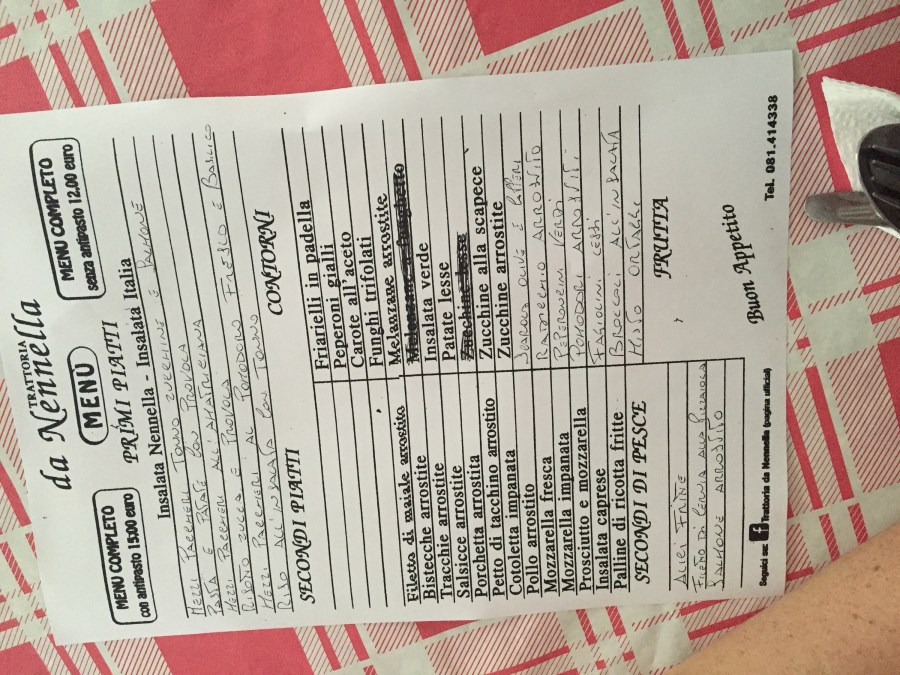 TRATTORIA
da Nennella
MENU COMPLETO
con antipasto 15.00 euro
MENÙ
MENU COMPLETO
senza antipasto 12.00 euro
PRIMI PIATTI
Insalata Nennella - Insalata Italia
MEZZI PACCHERI TONNO ZUCCHINE E
PASTA E PATATE CON PROVOLA
MEZZI PACCHERI ALL'AMATRICIANA
RISOTTO ZUCCA E PROVOLA
MEZZI PACCHERI AL POMODORO FRESCO E BASILICO
RISO ALL'INSALATA CON TONNO
SECONDI PIATTI
Filetto di maiale arrostito
Bistecche arrostite
Tracchie arrostite
Salsicce arrostite
Porchetta arrostita
Petto di tacchino arrostito
Cotoletta impanata
Pollo arrostito
Mozzarella fresca
Mozzarella impanata
Prosciutto e mozzarella
Insalata caprese
Palline di ricotta fritte
SECONDI DI PESCE
ALICI FRITTE
ALLA PIZZAIOLA
SALMONE ARROSTITO
CONTORNI
Friarielli in padella
Peperoni gialli
Carote all'aceto
Funghi trifolati
Melanzane arrostite
Melanzane a funghetto
Insalata verde
Patate lesse
Zucchine lesse
Zucchine alla scapece
Zucchine arrostite
OLIVE E
RADICCHIO ARROSTITO
PEPERONCINI VERDI
POMODORI ARROSTITI
FAGIOLINI LESSI
BROCCOLI ALL'INSALATA
MISTO ORTAGGI
FRUTTA
Buon Appetito
Seguici su: f Trattoria da Nennella (pagina ufficial)
Tel. 081.414338